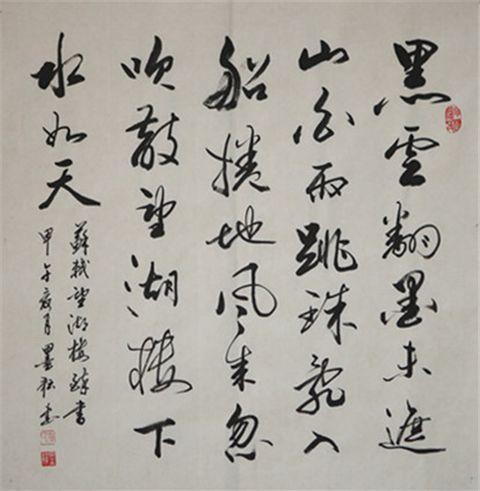 黑雲翻墨未遮
山白雨跳珠亂入
船捲地風來忽
吹散望湖樓下
水如天
蘇軾望湖樓醉書
甲午夏月墨